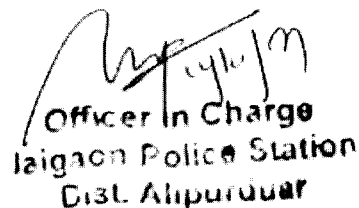 Officer In Charge
Jaigaon Police Station
Dist. Alipurduar